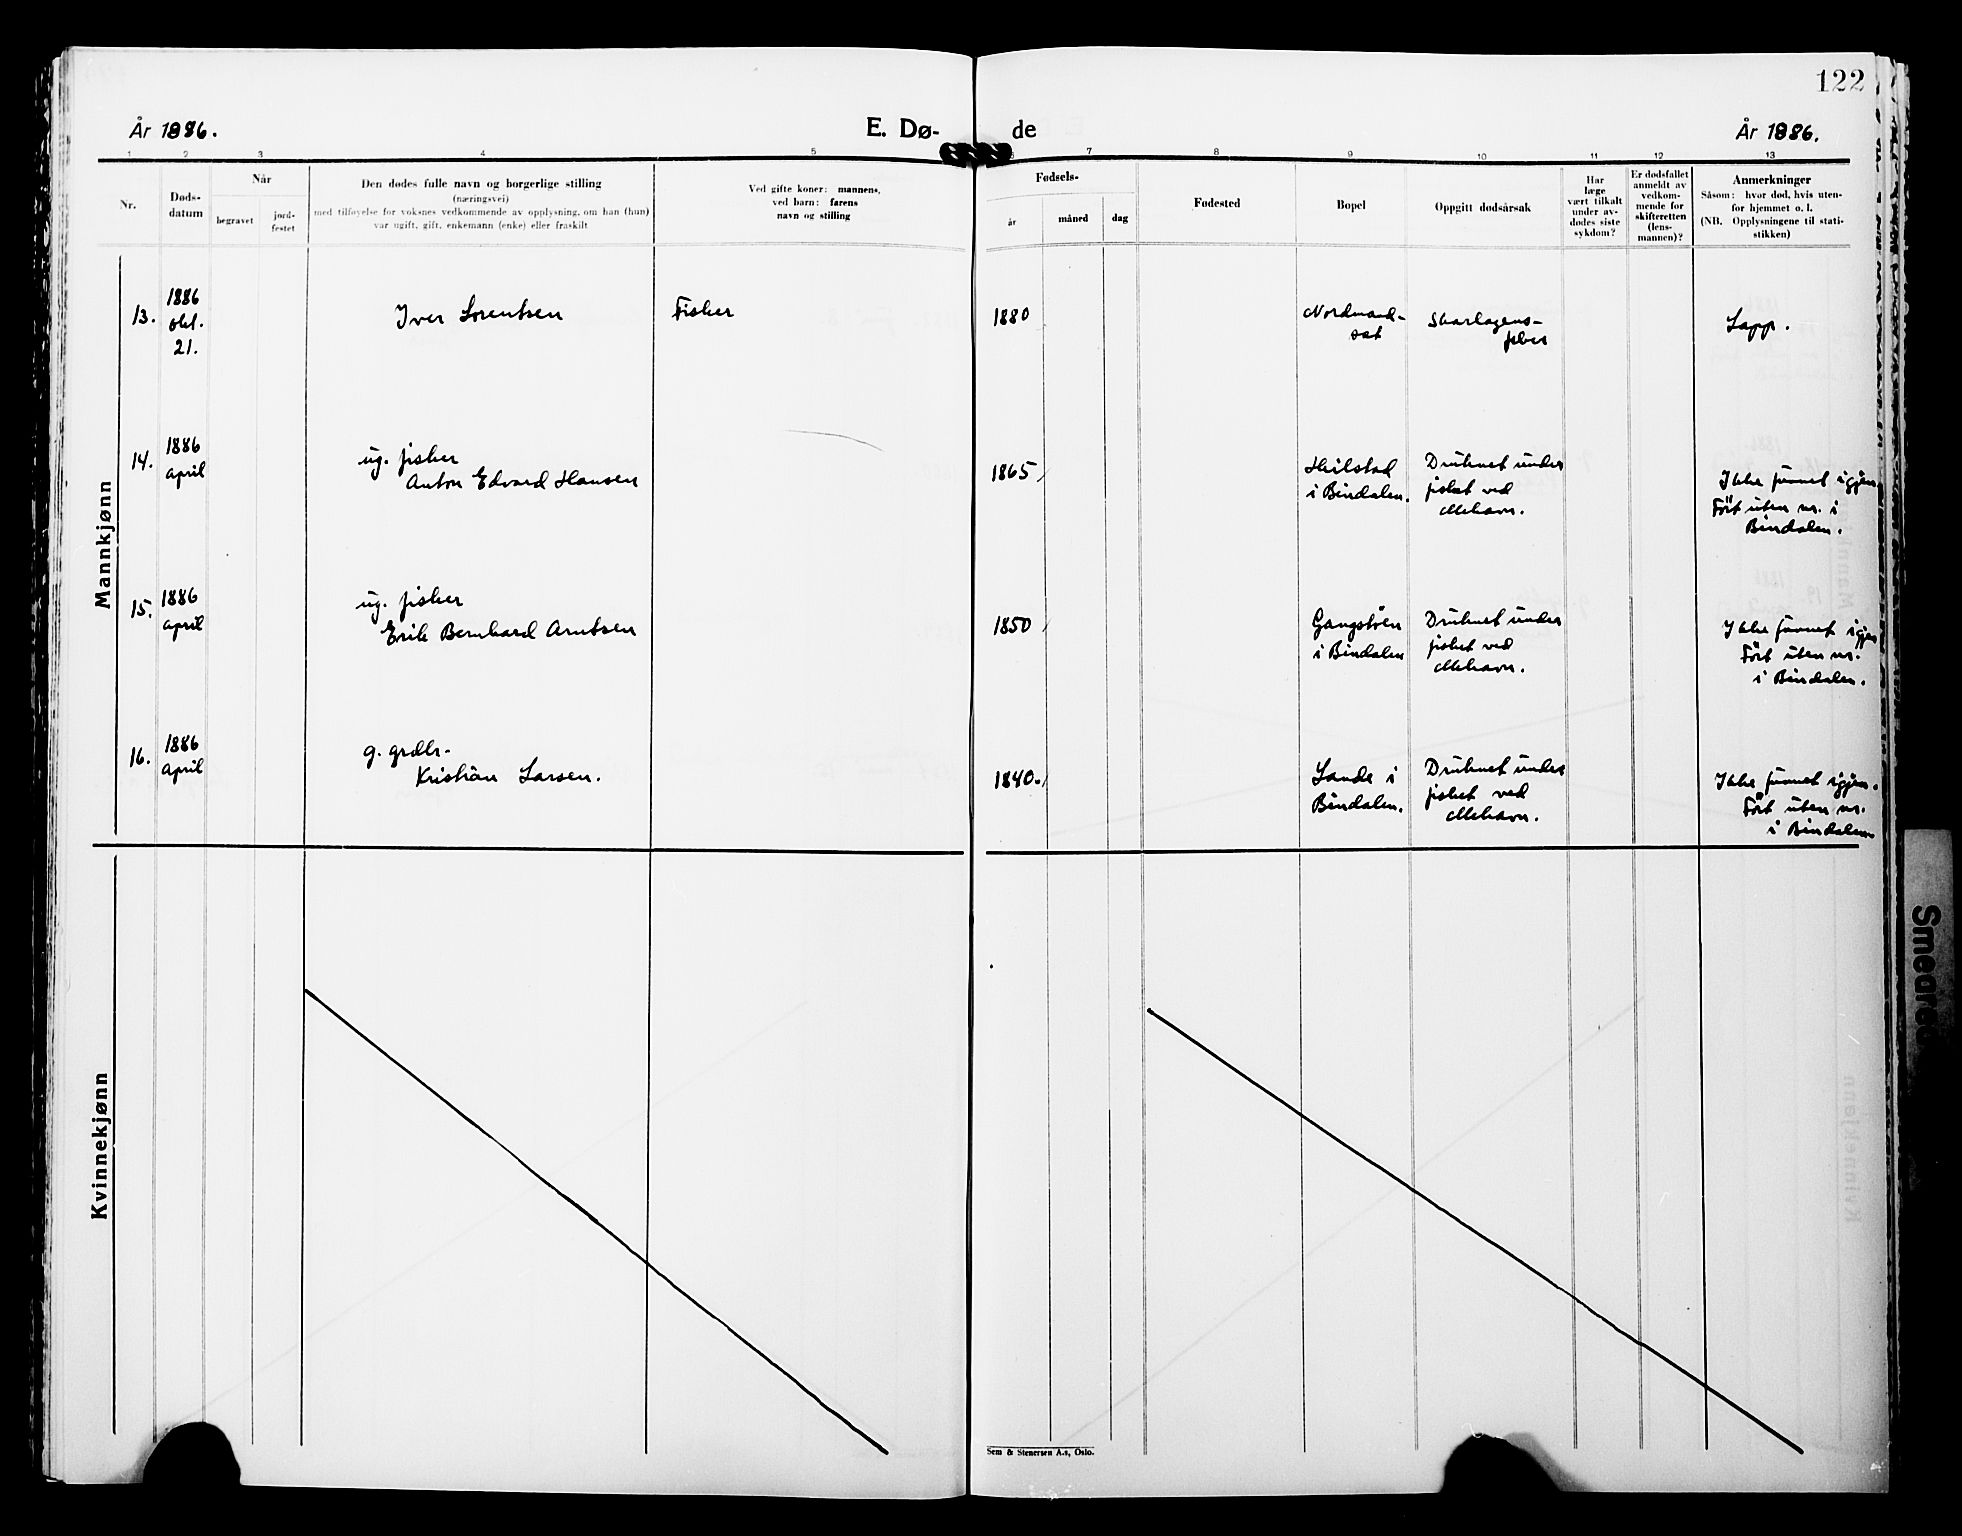 122
År 1886.
E. Dø-
de
År 1886.
1 2 3 4 5 6 7 8 9 10 11 12 13
Nr.
Døds-
datum
Når
begravet
jord-
festet
Den dødes fulle navn og borgerlige stilling
(næringsvei)
med tilføyelse for voksnes vedkommende av opplysning, om han (hun)
var ugift, gift, enkemann (enke) eller fraskilt
Ved gifte koner: mannens,
ved barn: farens
navn og stilling
Fødsels-
år
måned
dag
Fødested
Bopel
Oppgitt dødsårsak
Har
læge
vært tilkalt
under av-
dødes siste
sykdom?
Er dødsfallet
anmeldt av
vedkom-
mende for
skifteretten
(lens-
mannen)?
Anmerkninger
Såsom: hvor død, hvis uten-
for hjemmet o. l.
(NB. Opplysningene til stati-
stikken)
Mannkjønn
13.
1886
okt.
21.
Iver Lorentsen
Fisker
1880
Nordmand-
set
Skarlagens-
feber
Lapp.
14.
1886
april
ug. fisker
Anton Edvard Hansen
1865
Heilstad
i Bindalen.
Druknet under
fisket ved
Mehavn.
Ikke funnet igjen
Fört uten nr. i
Bindalen.
15.
1886
april
ug. fisker
Erik Bernhard Arntsen
1850
Gangstöen
i Bindalen
Druknet under
fisket ved
Mehavn.
Ikke funnet igjen
Fört uten nr.
i Bindalen.
16.
1886
April
g. grdbr.
Kristian Larsen.
1840.
Lande i
Bindalen.
Druknet under
fisket ved
Mehavn.
Ikke funnet igjen.
Fört uten nr.
i Bindalen
Kvinnekjønn
Sem & Stenersen A.s, Oslo.